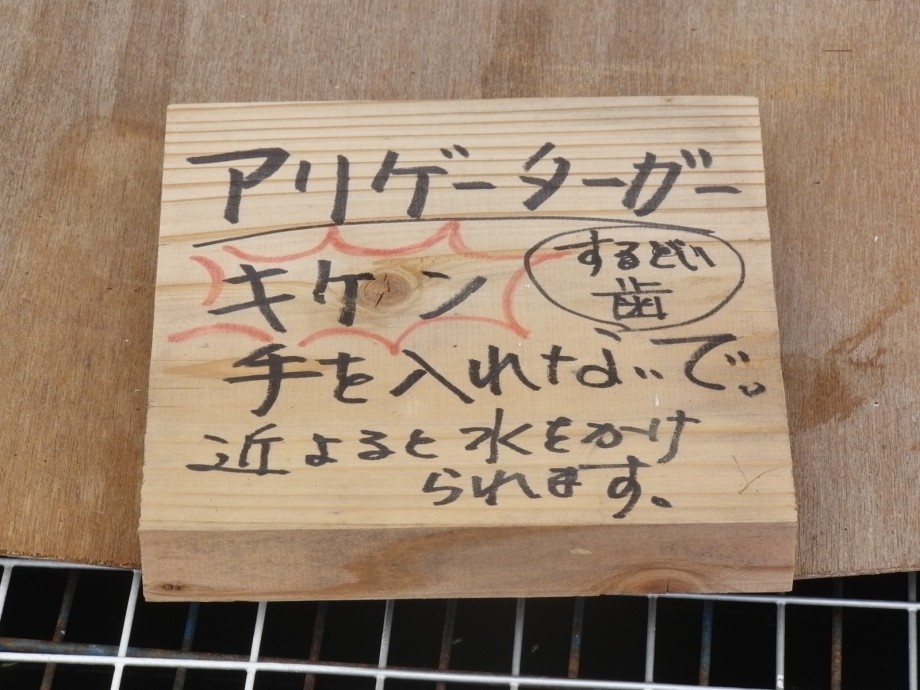 アリゲーターガー
キケン
するどい
歯
手を入れないで。
近よると水をかけ
られます。